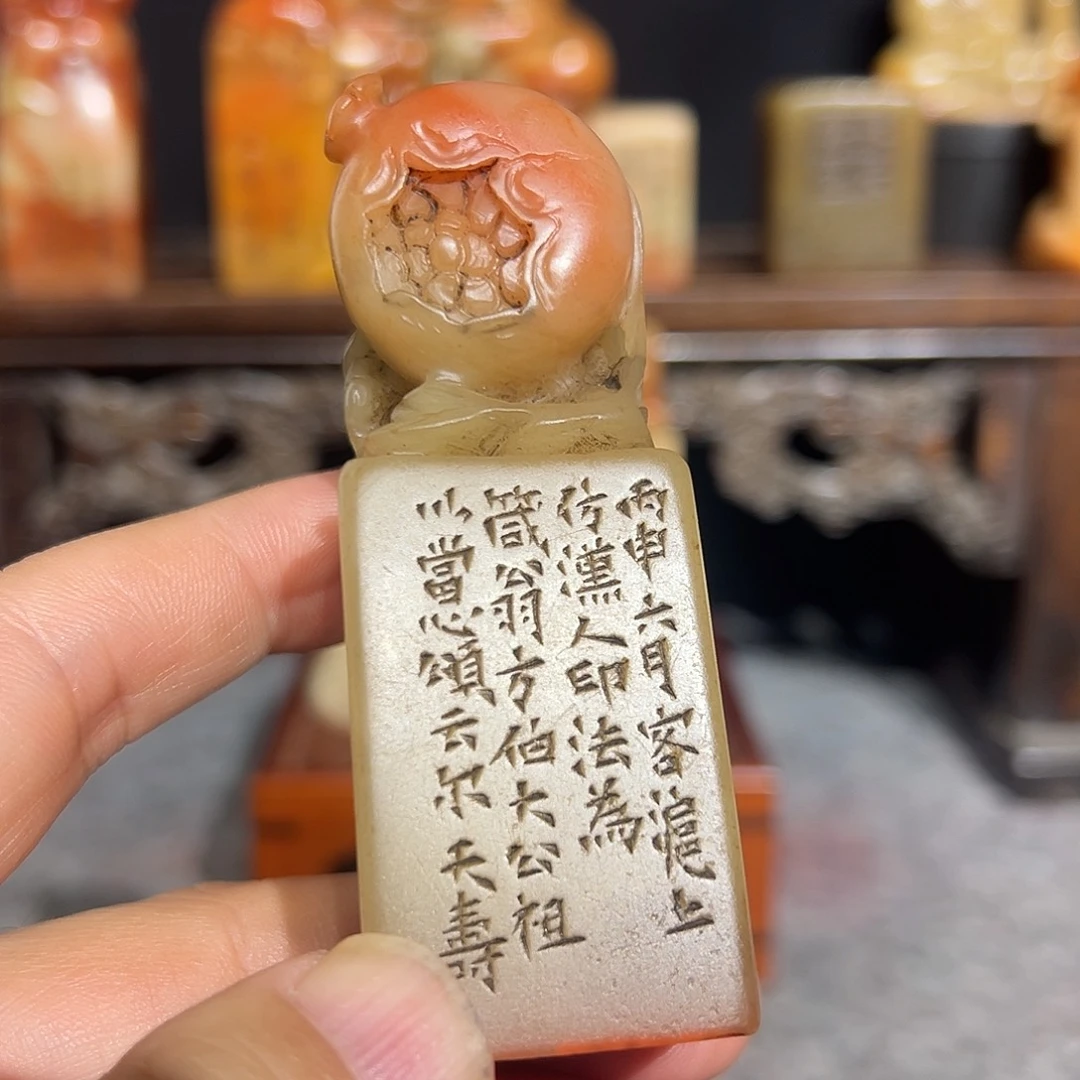 丙申六月客滬上
仿漢人印法為
箴翁方伯大公祖
以當心頌云尔天壽